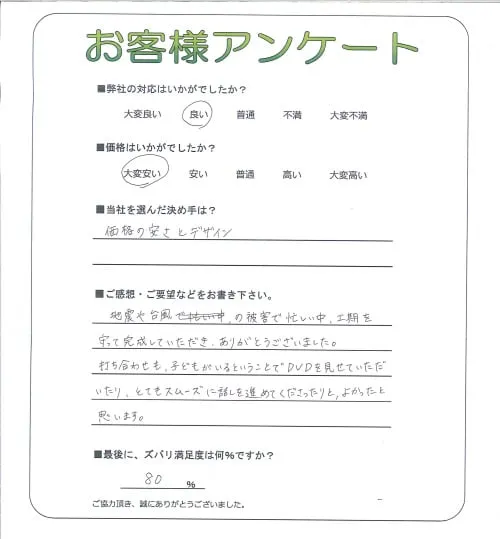 お客様アンケート
■弊社の対応はいかがでしたか？
大変良い 良い 普通 不満 大変不満
■価格はいかがでしたか？
大変安い 安い 普通 高い 大変高い
■当社を選んだ決め手は？
価格の安さとデザイン
■ご感想・ご要望などをお書き下さい。
地震や台風の被害で忙しい中、工期を
守って完成していただき、ありがとうございました。
打ち合わせも、子どもがいるということでDVDを見せていただ
いたり、とてもスムーズに話しを進めてくださったりと、よかったと
思います。
■最後に、ズバリ満足度は何％ですか？
80 %
ご協力頂き、誠にありがとうございました。